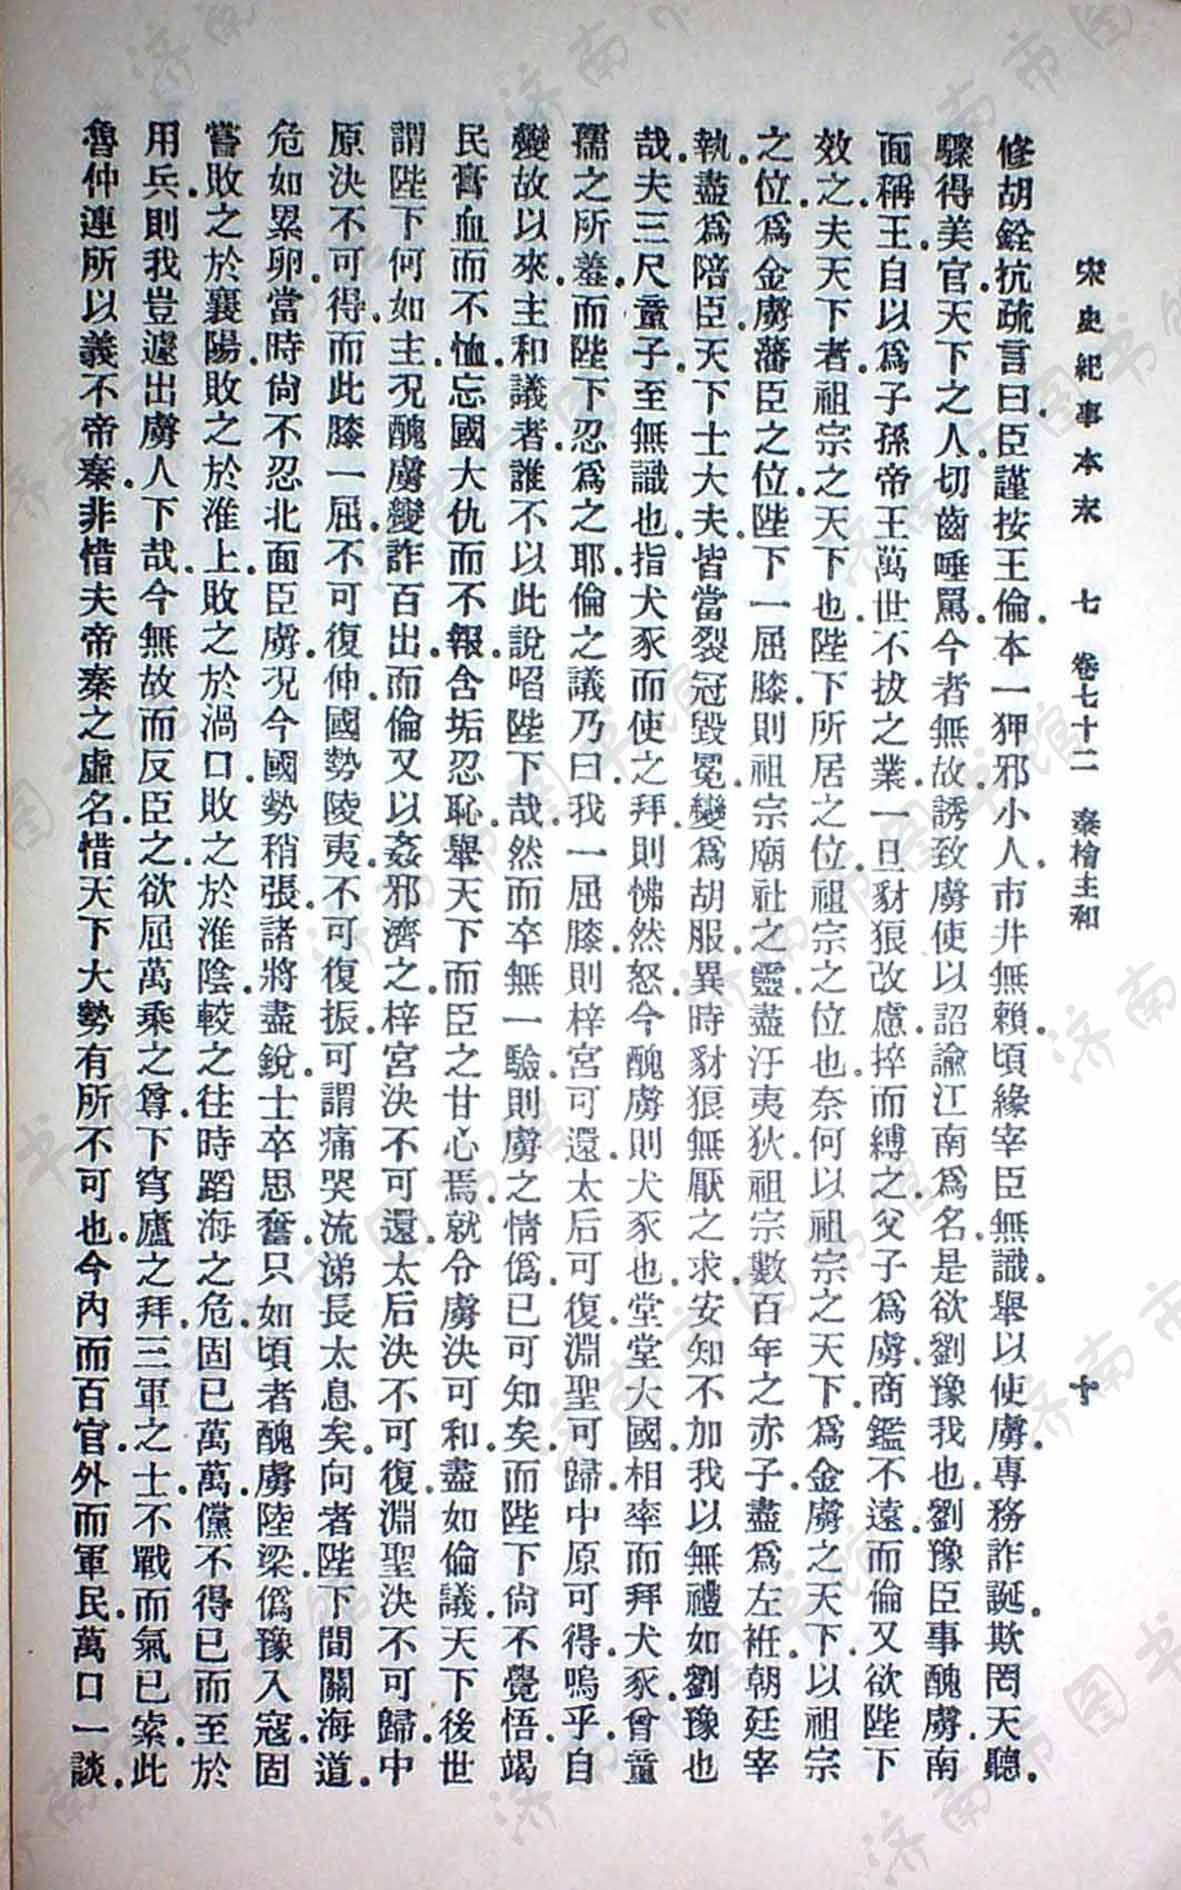 宋史紀事本末　七　卷七十二　秦檜主和　十
修胡銓抗疏言曰臣謹按王倫本一狎邪小人市井無賴頃緣宰臣無識舉以使虜專務詐誕欺罔天聽
驟得美官天下之人切齒唾罵今者無故誘致虜使以詔諭江南爲名是欲劉豫我也劉豫臣事醜虜南
面稱王自以爲子孫帝王萬世不拔之業一旦豺狼改慮捽而縛之父子爲虜商鑑不遠而倫又欲陛下
效之夫天下者祖宗之天下也陛下所居之位祖宗之位也奈何以祖宗之天下爲金虜之天下以祖宗
之位爲金虜藩臣之位陛下一屈膝則祖宗廟社之靈盡汙夷狄祖宗數百年之赤子盡爲左袵朝廷宰
執盡爲陪臣天下士大夫皆當裂冠毀冕變爲胡服異時豺狼無厭之求安知不加我以無禮如劉豫也
哉夫三尺童子至無識也指犬豕而使之拜則怫然怒今醜虜則犬豕也堂堂大國相率而拜犬豕曾童
孺之所羞而陛下忍爲之耶倫之議乃曰我一屈膝則梓宮可還太后可復淵聖可歸中原可得嗚乎自
變故以來主和議者誰不以此說啗陛下哉然而卒無一驗則虜之情僞已可知矣而陛下尙不覺悟竭
民膏血而不恤忘國大仇而不報含垢忍恥舉天下而臣之甘心焉就令虜決可和盡如倫議天下後世
謂陛下何如主況醜虜變詐百出而倫又以姦邪濟之梓宮決不可還太后決不可復淵聖決不可歸中
原決不可得而此膝一屈不可復伸國勢陵夷不可復振可謂痛哭流涕長太息矣向者陛下間關海道
危如累卵當時尙不忍北面臣虜況今國勢稍張諸將盡銳士卒思奮只如頃者醜虜陸梁僞豫入寇固
嘗敗之於襄陽敗之於淮上敗之於渦口敗之於淮陰較之往時蹈海之危固已萬萬儻不得已而至於
用兵則我豈遽出虜人下哉今無故而反臣之欲屈萬乘之尊下穹廬之拜三軍之士不戰而氣已索此
魯仲連所以義不帝秦非惜夫帝秦之虛名惜天下大勢有所不可也今內而百官外而軍民萬口一談
济南市图书馆